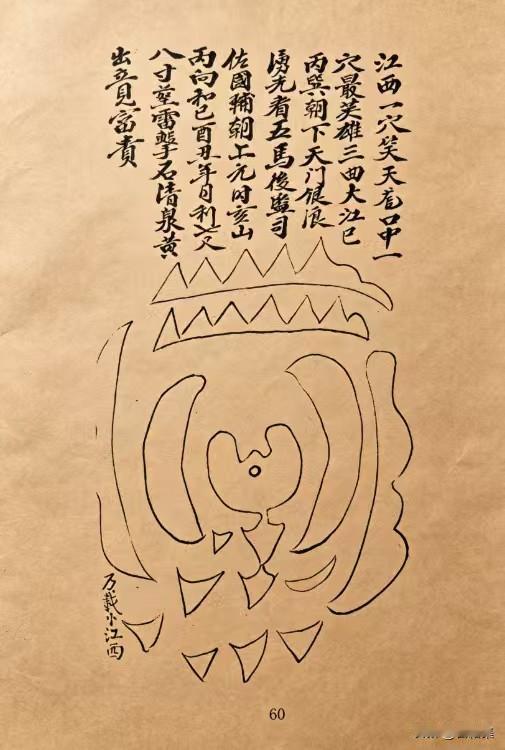 江西一穴笑天荅口中一
穴最英雄三曲大江巳
丙巽朝下天门银浪
湧先看五馬後監司
佐國補朝上元时亥山
丙向和已酉丑年日利心穴
八寸並雷擊石清泉黄
出竟見富貴
万載小江西
60